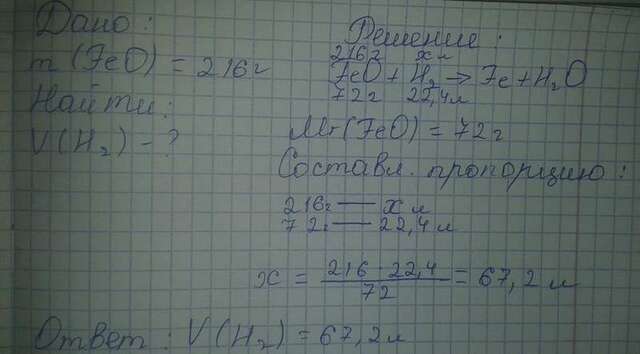 Дано:
m (FeO) = 216г
Найти:
V(H₂) - ?
Решение:
216г х л
FeO + H₂ → Fe + H₂O
72г 22,4л
Mr(FeO) = 72г
Составл. пропорцию:
216г — х л
72г — 22,4л
х = 216 · 22,4 / 72 = 67,2 л
Ответ: V(H₂) = 67,2л